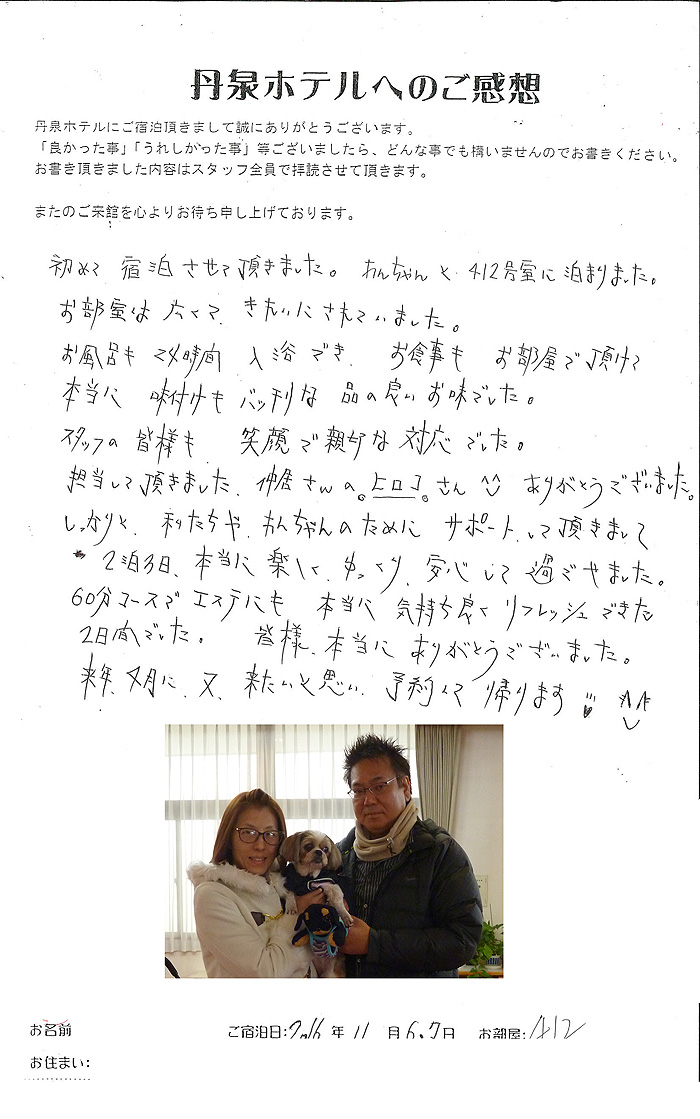 丹泉ホテルへのご感想
丹泉ホテルにご宿泊頂きまして誠にありがとうございます。
「良かった事」「うれしかった事」等ございましたら、どんな事でも構いませんのでお書きください。
お書き頂きました内容はスタッフ全員で拝読させて頂きます。
またのご来館を心よりお待ち申し上げております。
初めて 宿泊 させて 頂きました。 わんちゃんと 412号室に 泊まりました。
お部屋は 広くて、きれいに されていました。
お風呂も 24時間 入浴 でき、 お食事も お部屋で 頂けて
本当に 味付けも バッチリな 品の良い お味でした。
スタッフの 皆様も 笑顔で 親切な 対応 でした。
担当して 頂きました、仲居さんの。ヒロコ。さん ^^ ありがとうございました。
しっかりと、私たちや、わんちゃんのために サポートして 頂きまして
2泊3日、本当に 楽しく、ゆっくり、安心して 過ごせました。
60分コースで エステにも 本当に 気持ち良く リフレッシュ できた
2日間でした。 皆様、本当に ありがとうございました。
来年、4月に、又、来たいと思い、予約して 帰ります
お名前
ご宿泊日:2016 年 11 月 6.7日 お部屋:412
お住まい: